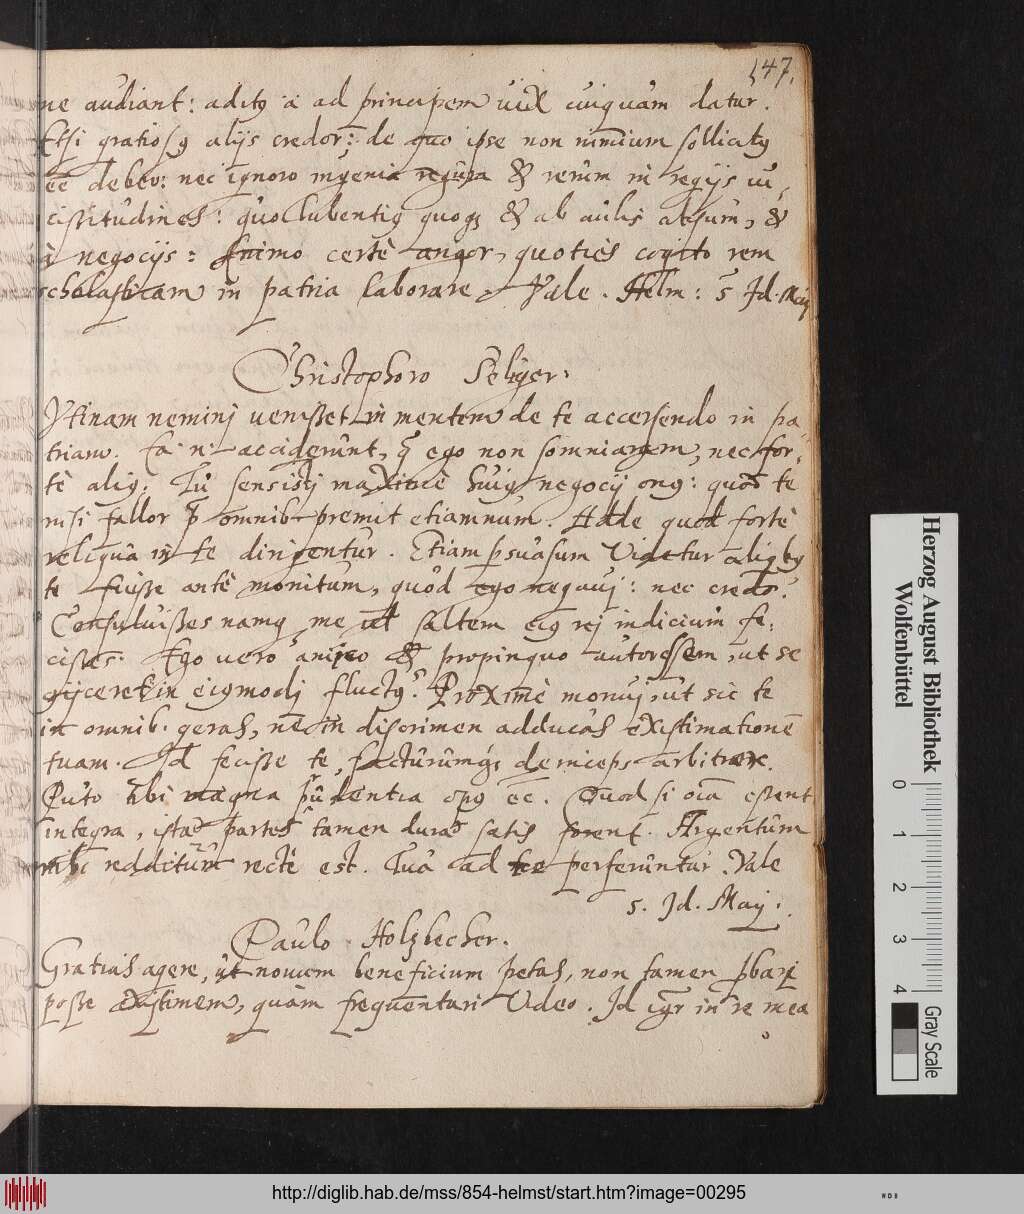 147.
ne audiant: aditꝰ ä ad principem vix cuiquam datur.
Etsi gratiosꝰ alijs credor: de quo ipse non nimium sollicitꝰ
eē debeo: nec ignoro ingenia regum & rerum in regijs vi-
cissitudines: quo lubentiꝰ quoqꝫ & ab aulis absum, &
à negocijs: Animo certè angor, quoties cogito rem
scholasticam in patria laborare. Vale. Helm: 5 Jd. Maij
Christophoro Seliger:
Vtinam nemini venisset in mentem de te accersendo in pa-
triam. Ea n. acciderunt, q̄ ego non somniarem, nec for-
tè aliꝰ. Tu sensisti maximè huiꝰ negocij onꝰ: quod te
nisi fallor p̄ omnib. premit etiamnum. Adde quod fortè
reliqua in te dirigentur. Etiam p̱suasum videtur aliqbꝰ
te fuisse antè monitum, quod ego negavi: nec credo.
Consuluisses namqꝫ me vel saltem eiꝰ rei indicium fe-
cisses. Ego vero amico & propinquo autor essem, ut se
rijceret in eiꝰmodi fluctꝰ? Proximè monui, ut sic te
in omnib. geras, ne in discrimen adducas existimationē
tuam. Id fecisse te, facturumqꝫ deinceps arbitror.
Puto tibi magna prudentia opꝰ eē. Quod si oīa essent
integra, istae partes tamen durae satis forent. Argentum
mihi redditum rectè est. Tua ad te perferuntur. Vale
5. Jd. Maij.
Paulo Holzbecher.
Gratias agere, ut novum beneficium petas, non tamen ꝓbari
posse existimem, quàm frequentari video. Id igr in re mea
Herzog August Bibliothek
Wolfenbüttel
0 1 2 3 4
Gray Scale
http://diglib.hab.de/mss/854-helmst/start.htm?image=00295
WDB